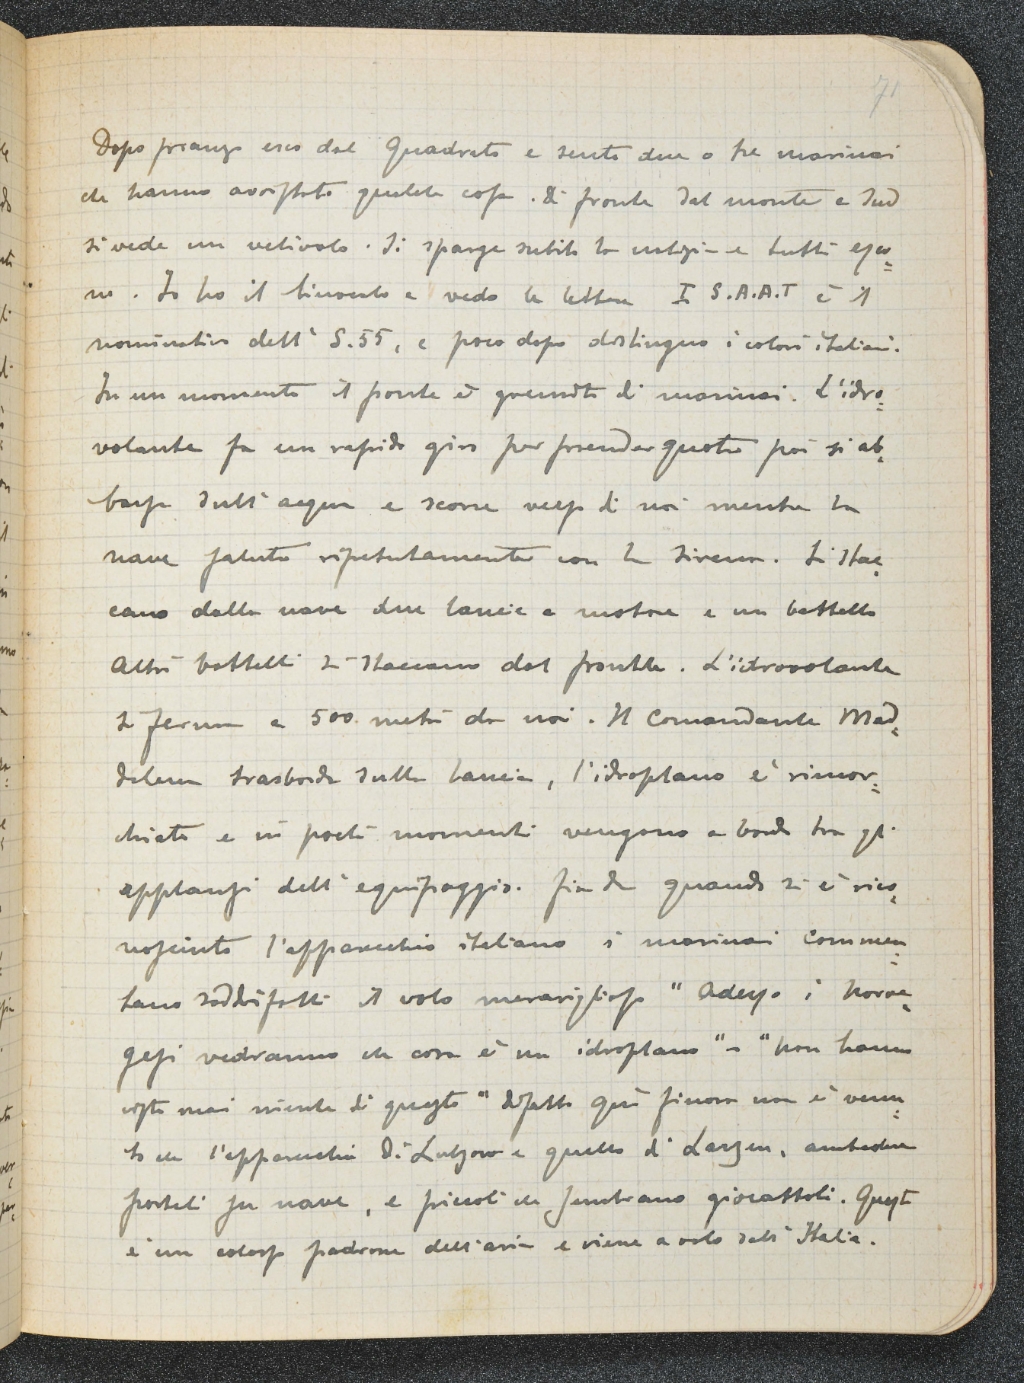 71
Dopo pranzo esco dal Quadrato e sento due o tre marinai
che hanno avvistato qualche cosa. Di fronte dal monte a Sud
si vede un velivolo. Si sparge subito la notizia e tutti esco=
no. Io ho il binocolo e vedo le lettere I S.A.A.T è il
nominativo dell' S.55, e poco dopo distinguo i colori italiani.
In un momento il ponte è gremito di marinai. L'idro=
volante fa un rapido giro per prender quota poi si ab=
bassa sull'acqua e scorre verso di noi mentre la
nave saluta ripetutamente con la sirena. Si stac=
cano dalla nave due lancie a motore e un battello
Altri battelli si staccano dal pontile. L'idrovolante
si ferma a 500 metri da noi. Il Comandante Mad=
dalena trasborda sulla lancia, l'idroplano è rimor=
chiato e in pochi momenti vengono a bordo tra gli
applausi dell'equipaggio. Fin da quando si è rico=
nosciuto l'apparecchio italiano i marinai commen=
tano soddisfatti il volo meraviglioso "Adesso i Norve=
gesi vedranno che cosa è un idroplano" - "Non hanno
visto mai niente di questo" Difatti qui finora non è venu=
to che l'apparecchio di Lutzow e quello di Larsen, ambedue
portati su nave, e piccoli che sembrano giocattoli. Questo
è un colosso padrone dell'aria e viene a volo dall'Italia.